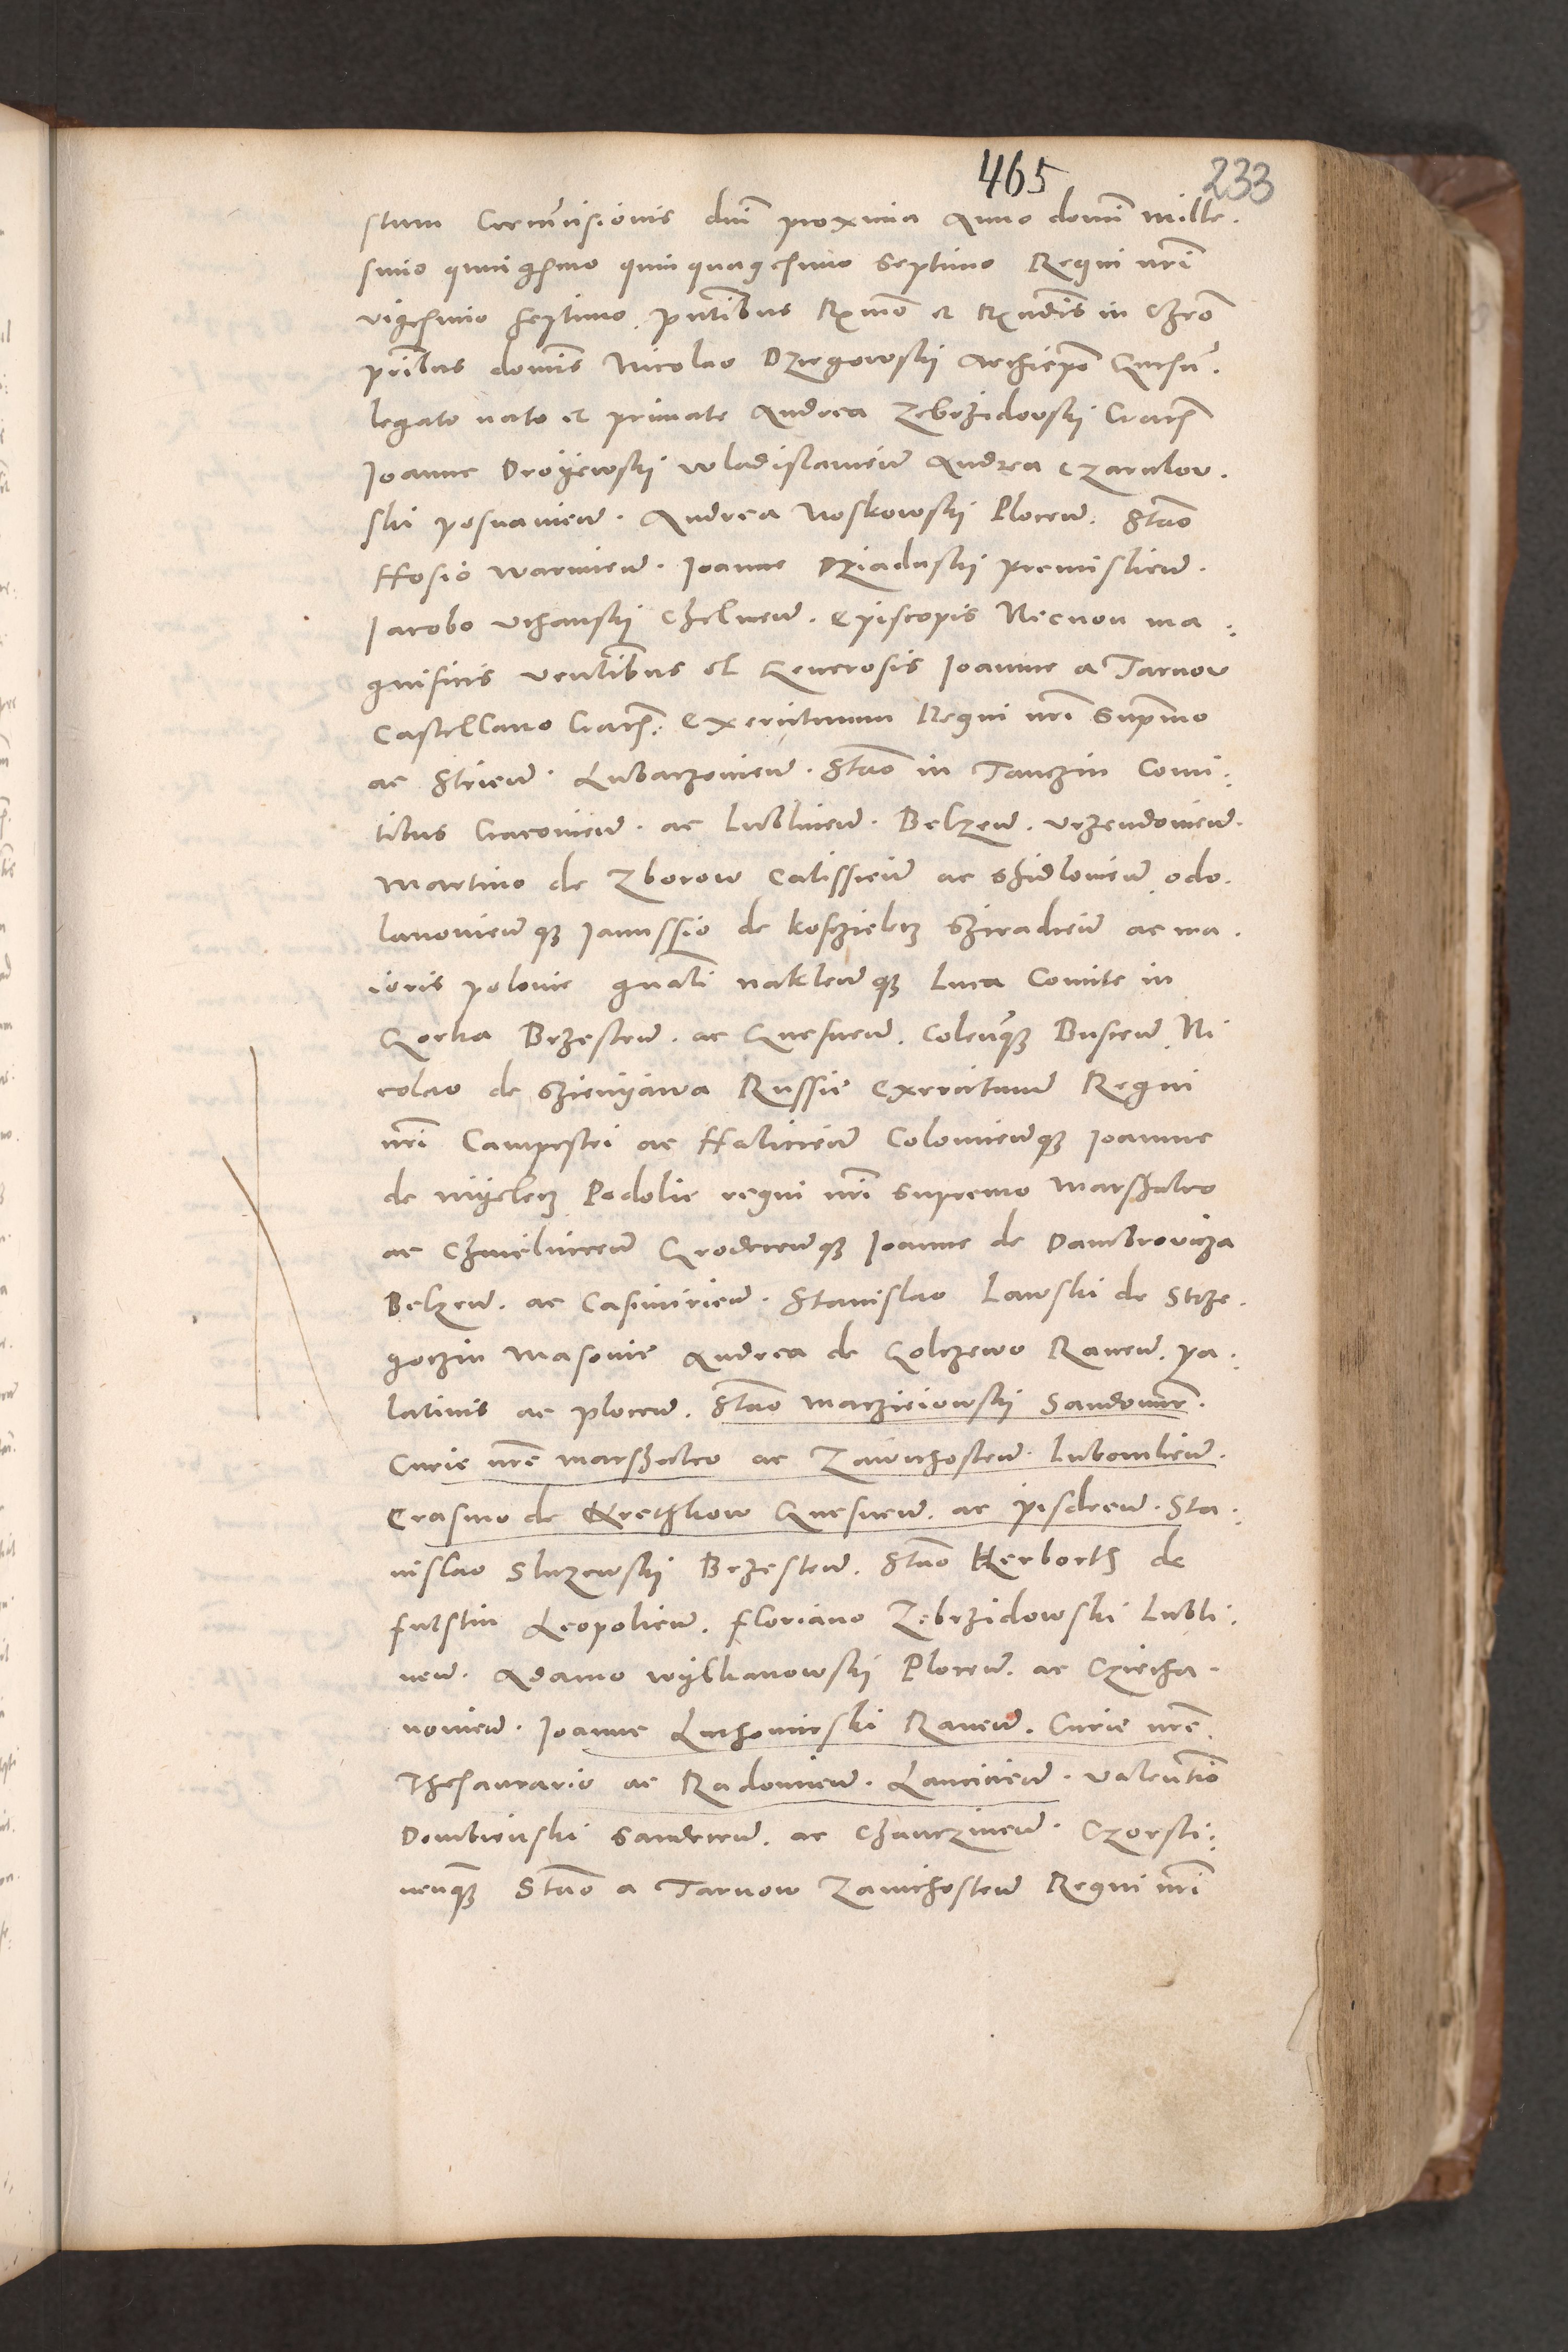 465 233
stum Circu̅cisionis dni̅ proxima Anno domi̅ mille.
simo quingēsmo quinquagesimo septimo Regni nri̅
vigesimo septimo, pn̅tibus Rxmo̅ et Rxndis̅ in Chro̅
prib̅us domi̅s Nicolao Dziegowskÿ Archiepo̅ Gnesn̅.
legato nato et primate Andrea Zebrzidovskÿ Crac̅
Joanne Droÿewskÿ Wladislavien̅ Andrea Czarnkov.
ski posnanien̅. Andrea Noskowskÿ Plocen̅. Stao̅
Hosio Warmien̅. Joanne Dziaduskÿ premislien̅.
Jacobo Uchanskÿ Chelmen̅. Episcopis Necnon ma:
gnificis venl̅ibus et Generosis Joanne a Tarnow
Castellano Crac̅: Exercituum Regni nri̅ Supr̅mo
ac Strien̅. Lubaczovien̅. Stao̅ in Tanczin Comi:
tibus Cracovien̅. ac Lublinen̅. Belzen̅. Urzendovien̅.
Martino de Zborow Calissien̅ ac Shidlovien̅ odo.
lanovien̅qʒ Janussio de koschieletz Sziradien̅ ac ma.
ioris polonie gn̅ali naklen̅qʒ Luca Comite in
Gorka Brzesten̅. ac Gnesnen̅. Colen̅qʒ Buscen̅ Ni
colao de Szieniÿawa Russie Exercituum̅ Regni
nri̅ Campestri ac Halicien̅ Colomien̅qʒ Joanne
de Mÿeletz Podolie regni nri̅ supremo Marshalco
ac Chmelnicen̅ Grodecen̅qʒ Joanne de Dambrovicza
Belzen̅. ac Casimirien̅. Stanislao Lawski de Strze.
goczin Masovie Andrea de Golczewo Raven̅. pa:
latinis ac plocen̅. Stao̅ Macziciowskÿ Sandomir̅.
Curie nre̅ marshalco ac Zawichosten̅. Lubomlien̅.
Erasmo de Krethkow Gnesnen̅. ac pisdren̅. Sta:
nislao Sluzewskÿ Brzesten̅. Stao̅ Herborth de
fulstin Leopolien̅. floriano Zebrzidowski Lubli:
nen̅. Adamo wÿlkanowskÿ Plocen̅. ac Cziecha.
novien̅. Joanne Luthomirski Raven̅. Curie nre̅
Thesaurario ac Radomien̅. Lancicien̅. valentio̅
Dembienski Sandecen̅. ac Chanczinen̅. Czorsti:
nen̅qʒ Stao̅ a Tarnow Zawichosten̅ Regni nri̅